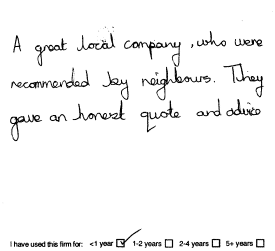 A great local company, who were
recommended by neighbours. They
gave an honest quote and advice
I have used this firm for: <1 year ☑ 1-2 years ☐ 2-4 years ☐ 5+ years ☐